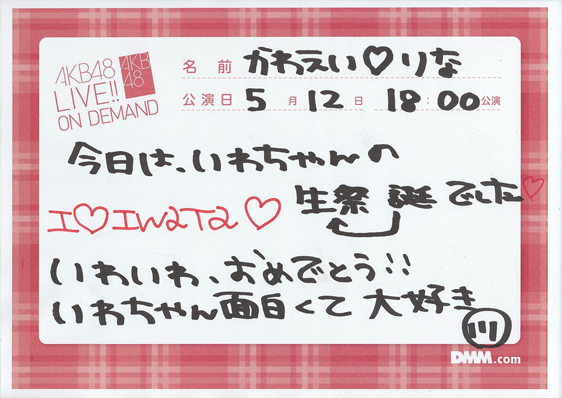 AKB48
LIVE!!
ON DEMAND
AKB
48
名前 かわえい♡りな
公演日 5月12日 18:00公演
今日は、いわちゃんの
生祭誕でした♡
I♡IWATA♡
いわいわ、おめでとう!!
いわちゃん面白くて大好き
川
DMM.com